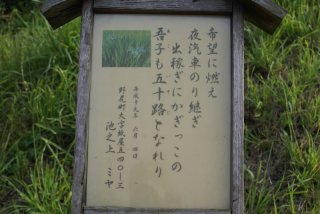 希望に燃え
夜汽車のり継ぎ
出稼ぎにかぎっこの
吾子も五十路となれり
平成十九年 六月 四日
野尻町大字紙屋五四〇一三
池之上 ミヤ